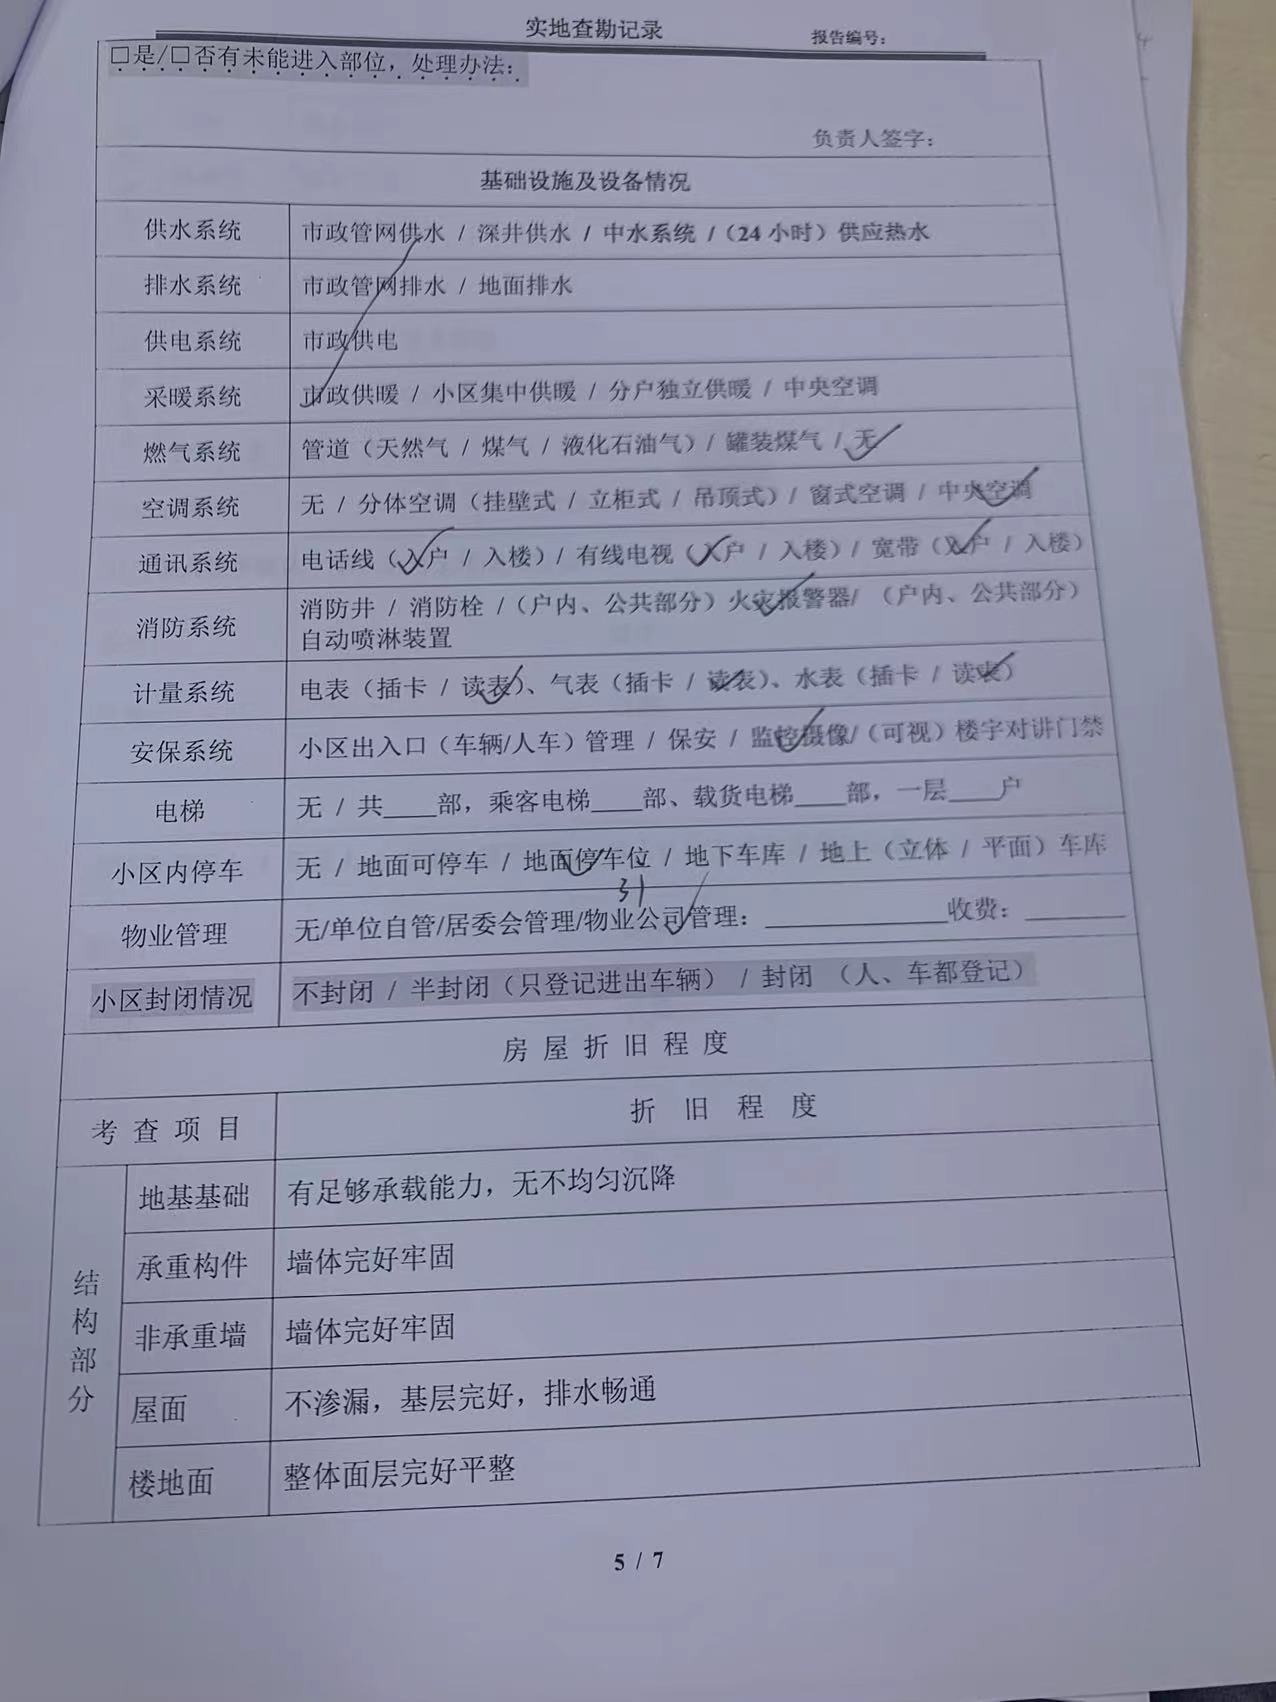 实地查勘记录
报告编号：
□是/□否有未能进入部位，处理办法：
负责人签字：
基础设施及设备情况
供水系统 市政管网供水 / 深井供水 / 中水系统 /（24 小时）供应热水
排水系统 市政管网排水 / 地面排水
供电系统 市政供电
采暖系统 市政供暖 / 小区集中供暖 / 分户独立供暖 / 中央空调
燃气系统 管道（天然气 / 煤气 / 液化石油气）/ 罐装煤气 / 无
空调系统 无 / 分体空调（挂壁式 / 立柜式 / 吊顶式）/ 窗式空调 / 中央空调
通讯系统 电话线（入户 / 入楼）/ 有线电视（入户 / 入楼）/ 宽带（入户 / 入楼）
消防系统 消防井 / 消防栓 /（户内、公共部分）火灾报警器/ （户内、公共部分）
自动喷淋装置
计量系统 电表（插卡 / 读表）、气表（插卡 / 读表）、水表（插卡 / 读表）
安保系统 小区出入口（车辆/人车）管理 / 保安 / 监控摄像/（可视）楼宇对讲门禁
电梯 无 / 共____部，乘客电梯____部、载货电梯____部，一层____户
小区内停车 无 / 地面可停车 / 地面停车位 / 地下车库 / 地上（立体 / 平面）车库
31
物业管理 无/单位自管/居委会管理/物业公司管理：______________收费：________
小区封闭情况 不封闭 / 半封闭（只登记进出车辆） / 封闭 （人、车都登记）
房屋折旧程度
考查项目 折旧程度
结构部分
地基基础 有足够承载能力，无不均匀沉降
承重构件 墙体完好牢固
非承重墙 墙体完好牢固
屋面 不渗漏，基层完好，排水畅通
楼地面 整体面层完好平整
5 / 7